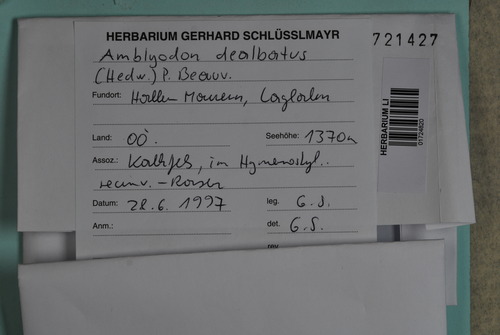 HERBARIUM GERHARD SCHLÜSSLMAYR
721427
Amblyodon dealbatus
(Hedw.) P. Beauv.
Fundort: Haller Mauern,
Land: OÖ. Seehöhe: 1370m
Assoz.: Kalkfels, im Hymenostyl..
recurv. - Rasen
Datum: 28.6. 1997 leg. G.S.
Anm.: det. G.S.
rev.
HERBARIUM LI
01724820